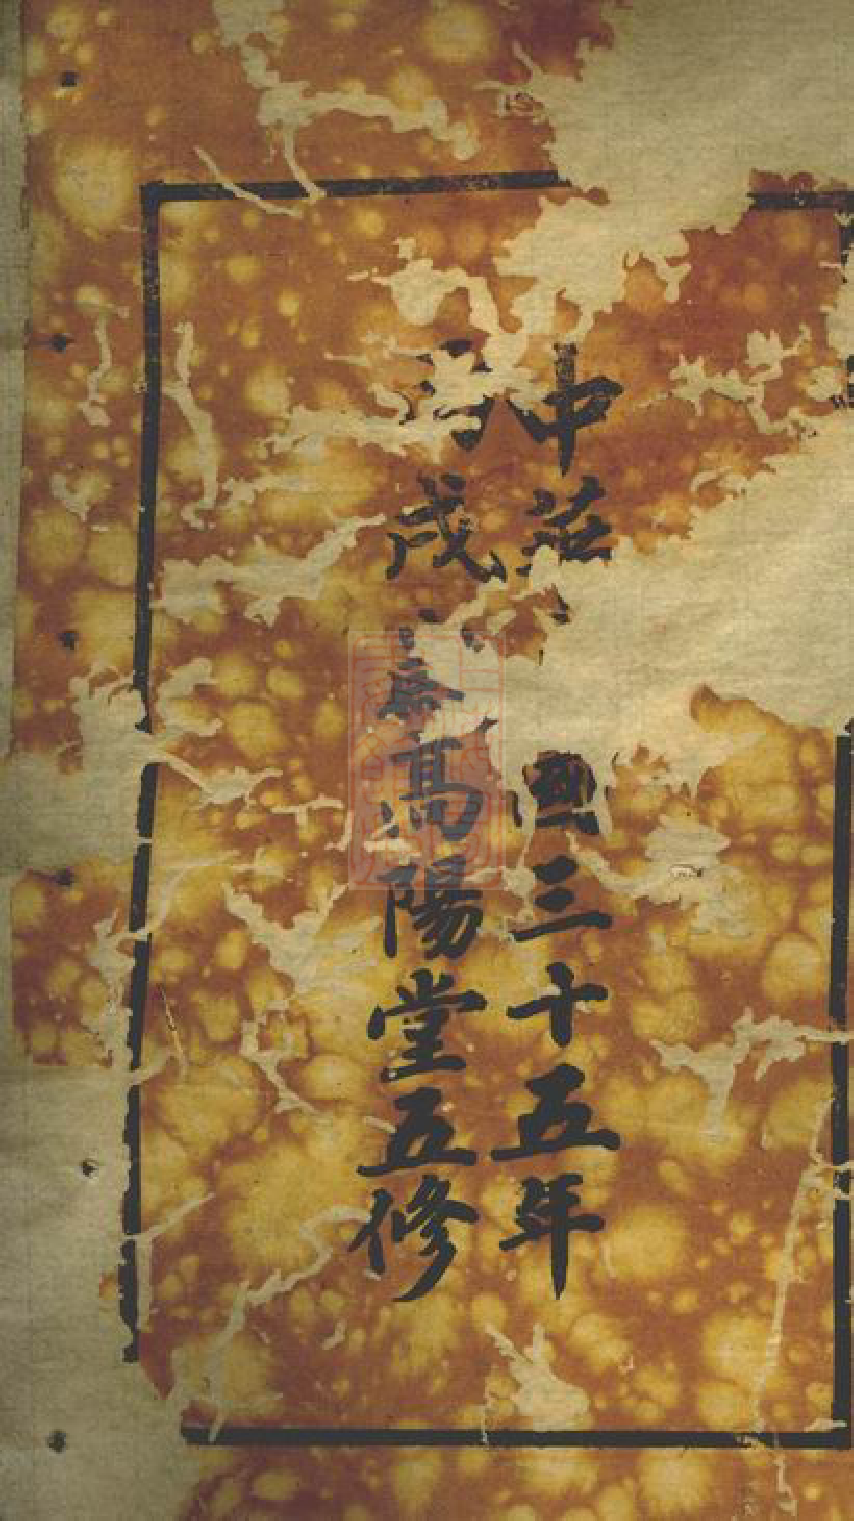 中華國三十五年
戌高陽堂五修